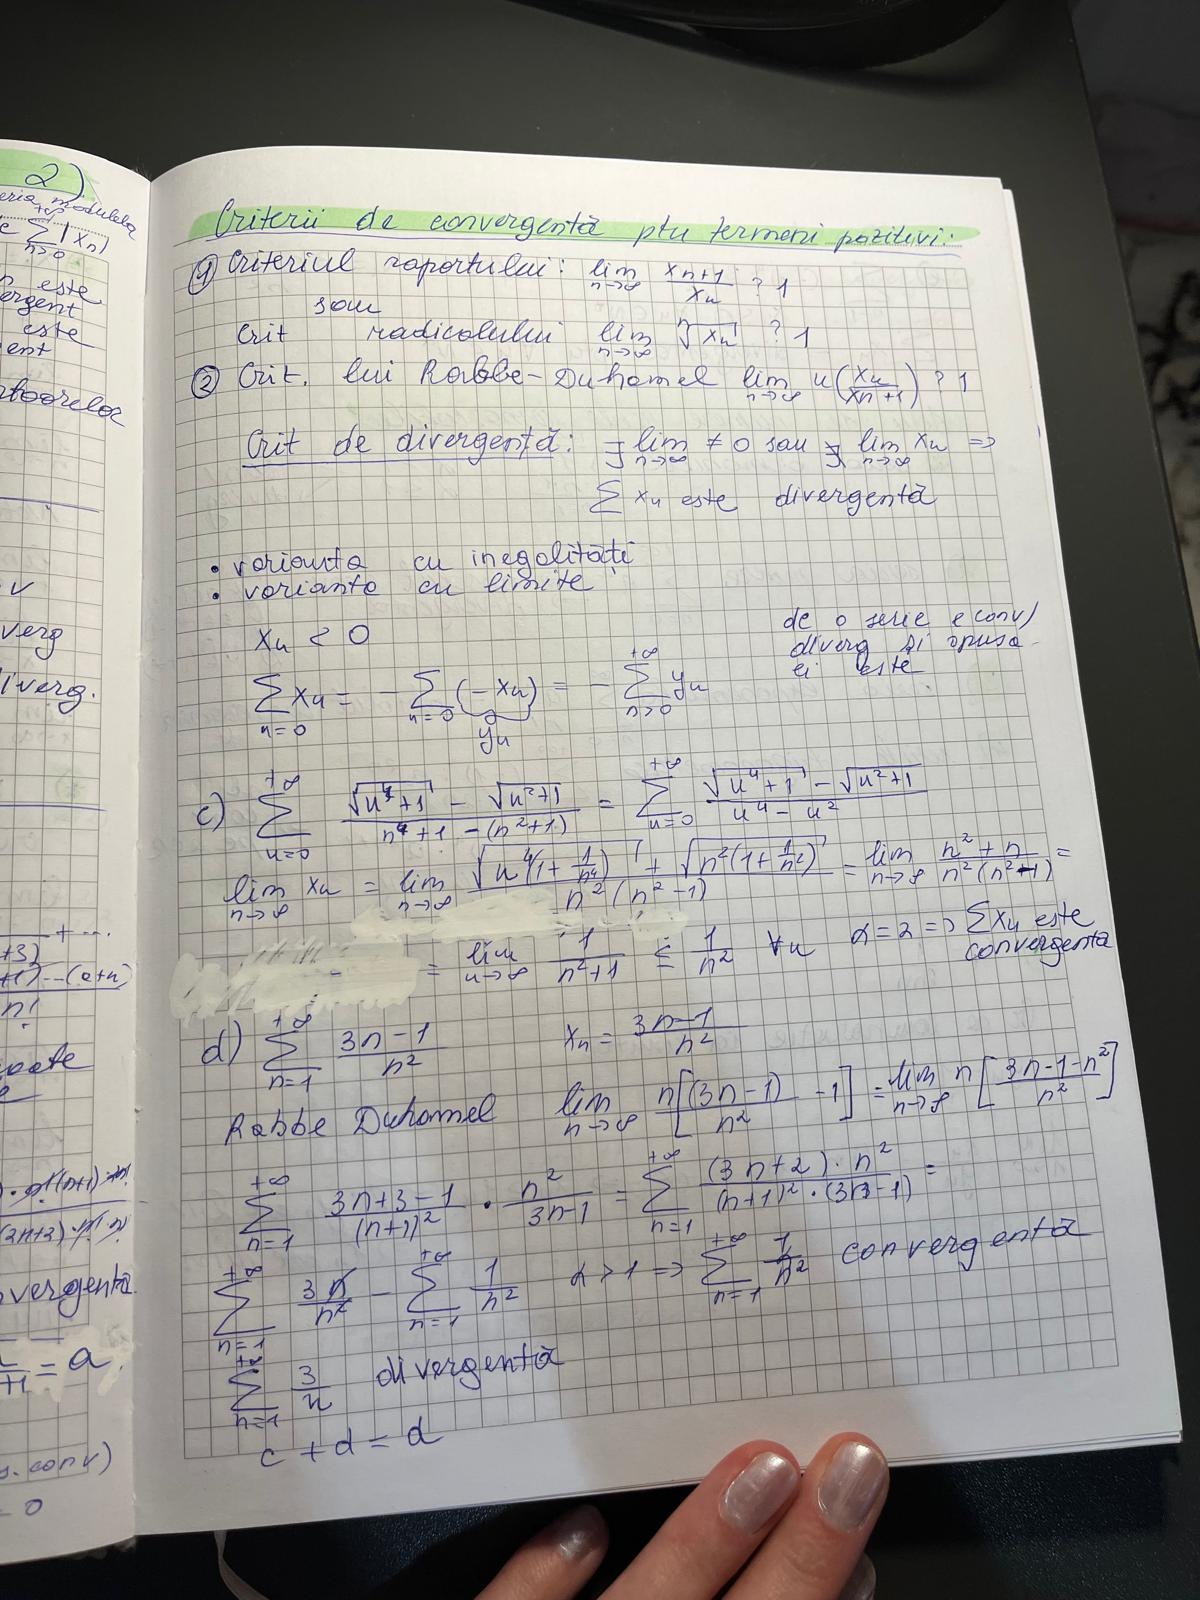 2)
modulelor
+∞
∑ |xn|
n>0
este
ergent
este
ent
v
verg
diverg.
+ ...
n!
vergentă
= a
s. conv)
= 0
Criterii de convergentă ptu termeni pozitivi:
① Criteriul raportului: lim n→∞ xn+1/xn ? 1
sau
Crit radicalului lim n→∞ ⁿ√xn ? 1
② Crit. lui Rabbe-Duhamel lim n→∞ n(xn/xn+1) ? 1
Crit de divergentă: ∃ lim n→∞ ≠ 0 sau ∄ lim n→∞ xn =>
∑ xn este divergentă
• varianta cu inegalități
• varianta cu limite
xn < 0
de o serie e conv/
diverg și opusa
ei este
∑ n=0 xn = - ∑ n=0 (-xn) = - ∑ n>0 +∞ yn
yn
c) ∑ n=0 +∞ (√(n⁴+1) - √(n²+1))/(n⁴+1-(n²+1)) = ∑ n=0 +∞ (√(n⁴+1) - √(n²+1))/(n⁴-n²)
lim n→∞ xn = lim n→∞ (√(n⁴(1+1/n⁴)) + √(n²(1+1/n²)))/(n²(n²-1)) = lim n→∞ (n²+n)/(n²(n²-1)) =
= lim n→∞ 1/(n²+1) ≤ 1/n² ∀n α=2 => ∑xn este
convergentă
d) ∑ n=1 +∞ (3n-1)/n² xn = (3n-1)/n²
Rabbe Duhamel lim n→∞ n[(3n-1)/n² -1] = lim n→∞ n[(3n-1-n²)/n²]
∑ n=1 +∞ (3n+3-1)/(n+1)² · n²/(3n-1) = ∑ n=1 +∞ ((3n+2)·n²)/((n+1)²·(3n-1)) =
∑ n=1 +∞ 3n/n² - ∑ n=1 +∞ 1/n² α>1 => ∑ n=1 +∞ 1/n² convergentă
∑ n=1 +∞ 3/n divergentă
c + d = d